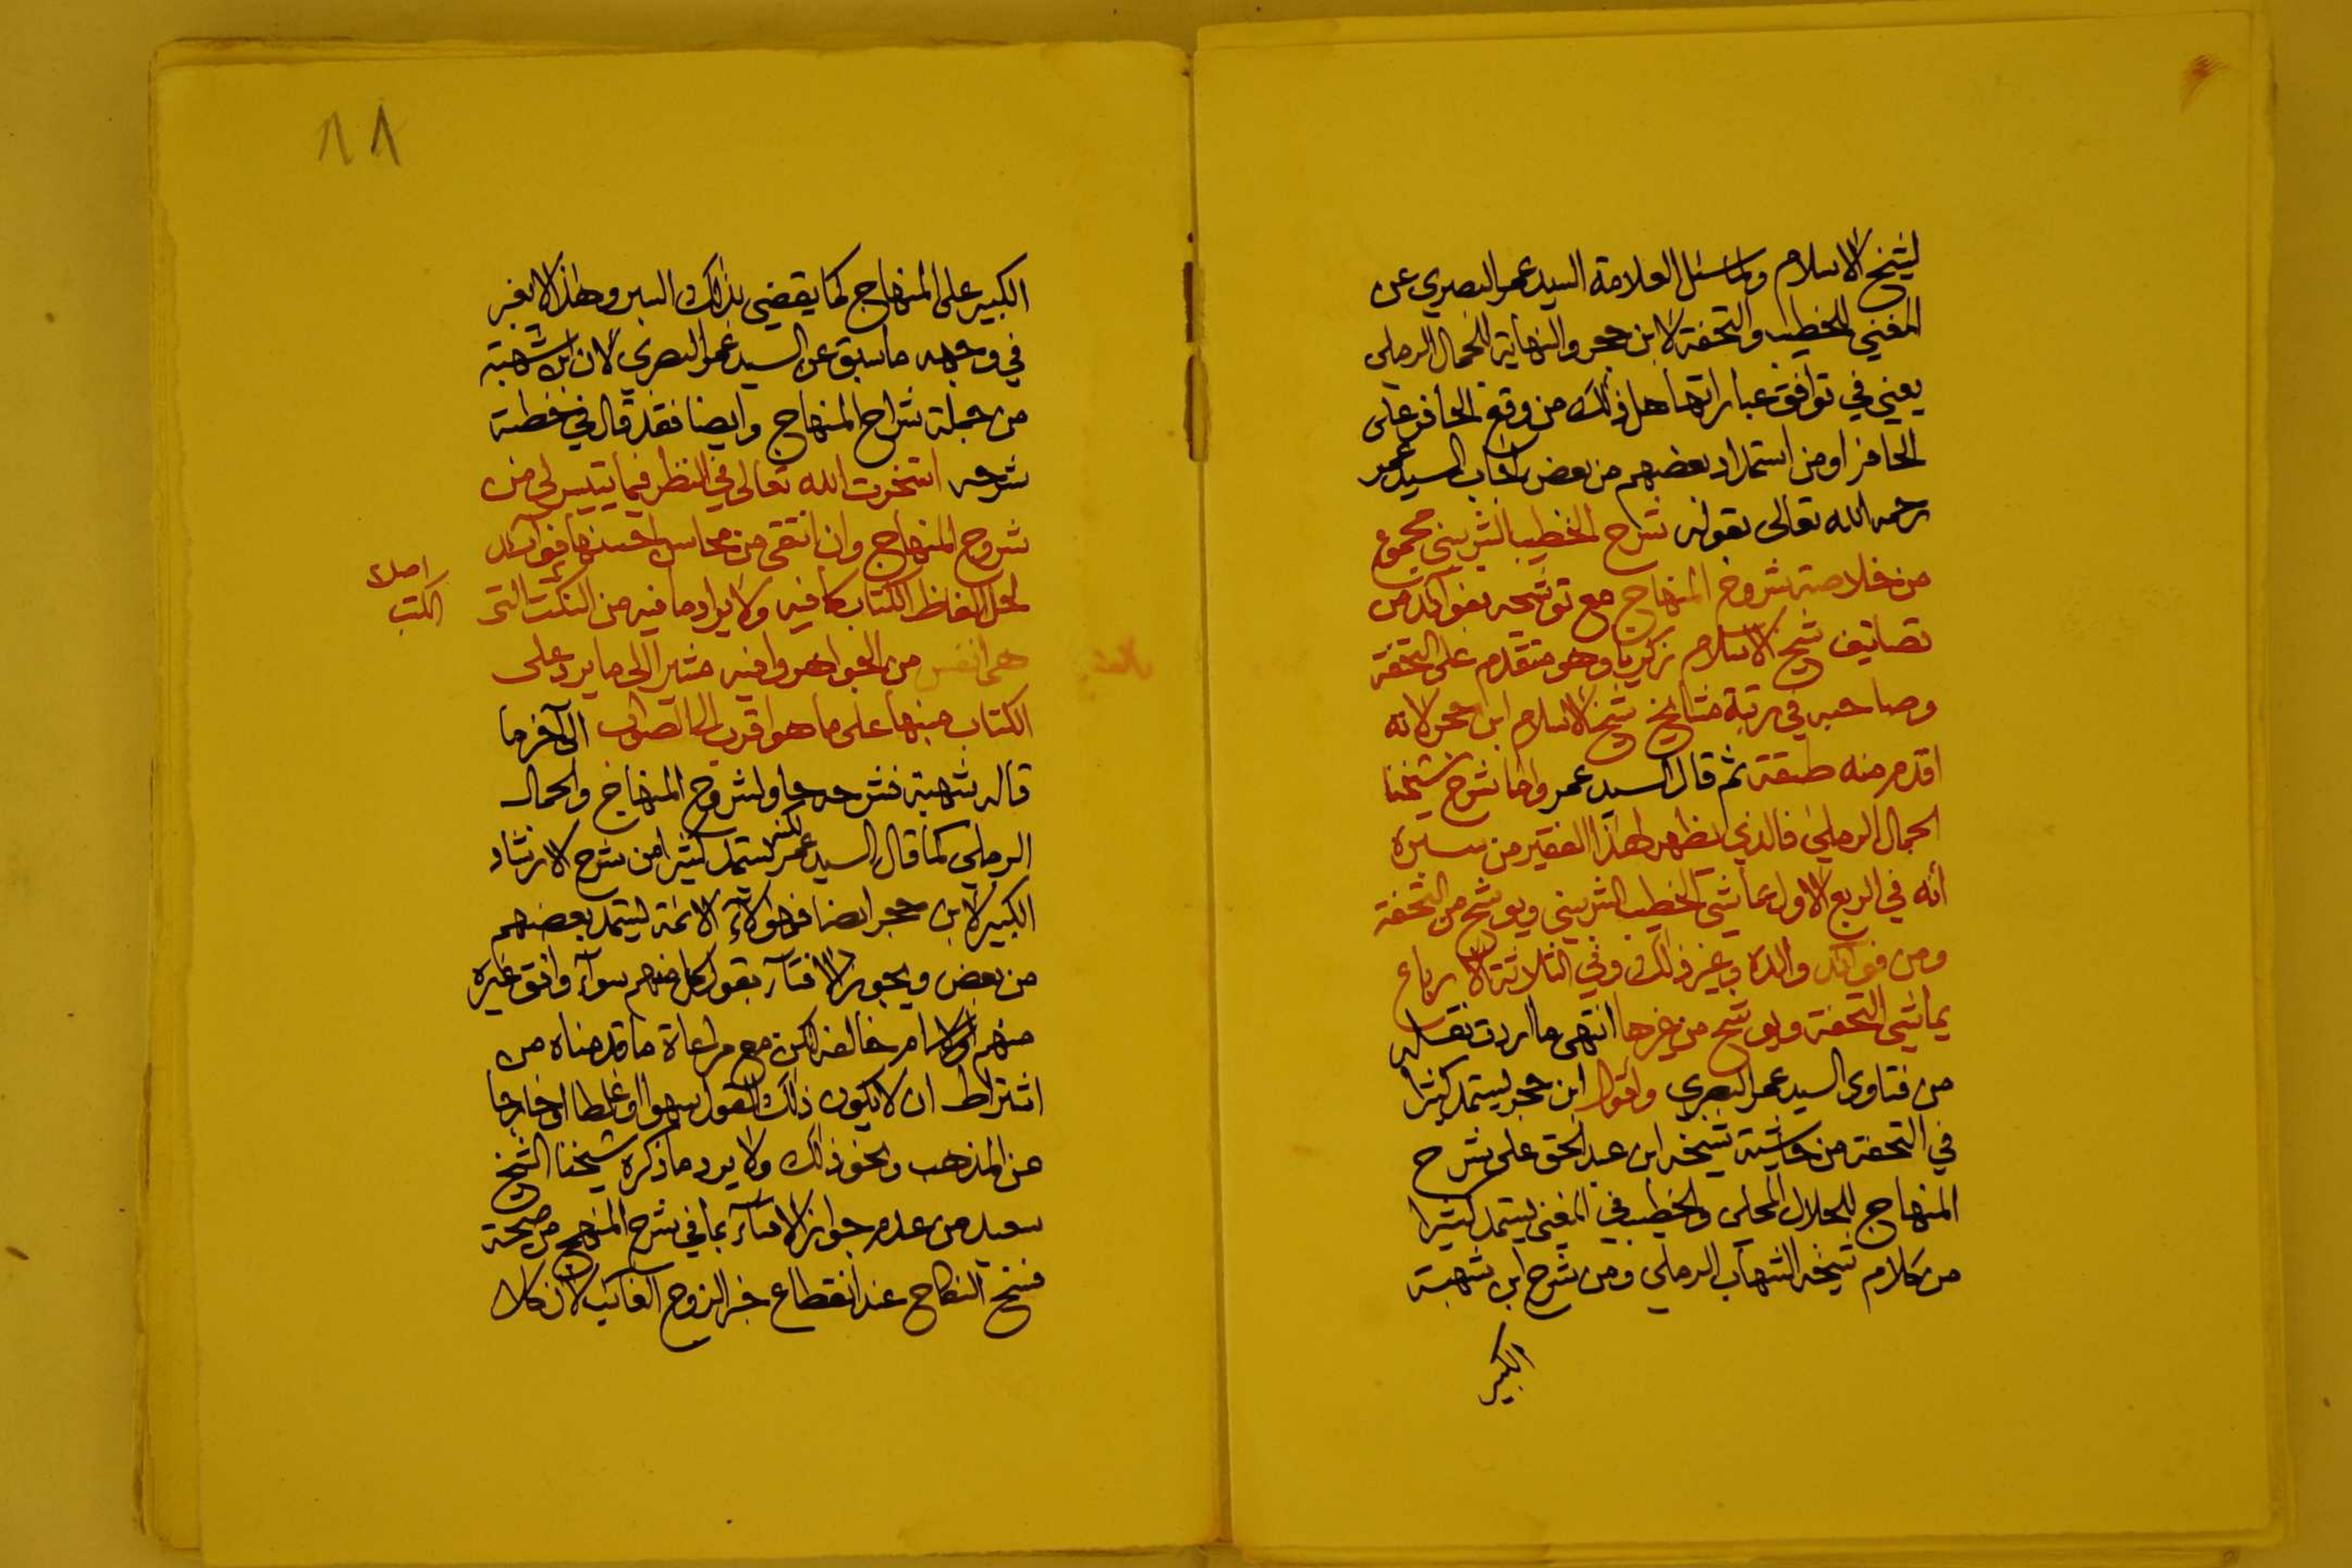 لشيخ الاسلام ولما سئل العلامة السيد عمر البصري عن
المغني للخطيب والتحفة لابن حجر والنهاية للجمال الرملي
يعني في توافق عباراتها هل ذلك من وقع الحافر على
الحافر او من استمداد بعضهم من بعض اجاب السيد عمر
رحمه الله تعالى بقوله شرح الخطيب الشربيني مجموع
من خلاصة شروح المنهاج مع توشيحه بفوائد من
تصانيف شيخ الاسلام زكريا وهو متقدم على التحفة
وصاحبه في رتبة مشايخ شيخ الاسلام ابن حجر لانه
اقدم منه طبقة ثم قال السيد عمر واما شرح شيخنا
الجمال الرملي فالذي ظهر لهذا الفقير من سبره
أنه في الربع الاول يماشي الخطيب الشربيني ويوشح من التحفة
ومن فوآئد والده وغير ذلك وفي الثلاثة الارباع
يماشي التحفة ويوشح من غيرها انتهى ما اردت نقله
من فتاوى السيد عمر البصري واقول ابن حجر يستمد كثيرا
في التحفة من حاشية شيخه ابن عبد الحق على شرح
المنهاج للجلال المحلي والخطيب في المغني يستمد كثيرا
من كلام شيخه الشهاب الرملي ومن شرح ابن شهبة
الكبير
١٨
الكبير على المنهاج كما يقضي بذلك السبر وهذا لا يغبر
في وجهه ما سبق عن السيد عمر البصري لان ابن شهبة
من جملة شراح المنهاج وايضا فقد قال في خطبة
شرحه استخرت الله تعالى في النظر فيما تيسر لي من
شروح المنهاج وان انتقي من محاسن احسنها فوآئد
لحل الفاظ الكتاب كافيه ولايراد ما فيه من النكت التي
اصلا
الكتب
هي انفس من الجواهر وافيه مشيرا الى ما يرد على
الكتاب منبها على ما هو اقرب الى الصواب الى آخر ما
قاله شهبة فشرحه حاو لشروح المنهاج والجمال
الرملي كما قال السيد عمر لكنه يستمد كثيرا من شرح الارشاد
الكبير لابن حجر ايضا فهؤلآء الائمة يستمد بعضهم
من بعض ويجوز الافتآء بقول كل منهم سوآء وافق غيره
منهم او لا ام خالفه لكن مع مراعاة ما قدمناه من
اشتراط ان لا يكون ذلك القول سهوا او غلطا او خارجا
عن المذهب ونحو ذلك ولا يرد ما ذكره شيخنا الشيخ
سعيد من عدم جواز الافتآء بما في شرح المنهج من صحة
فسخ النكاح عند انقطاع خبر الزوج الغائب لان كلا